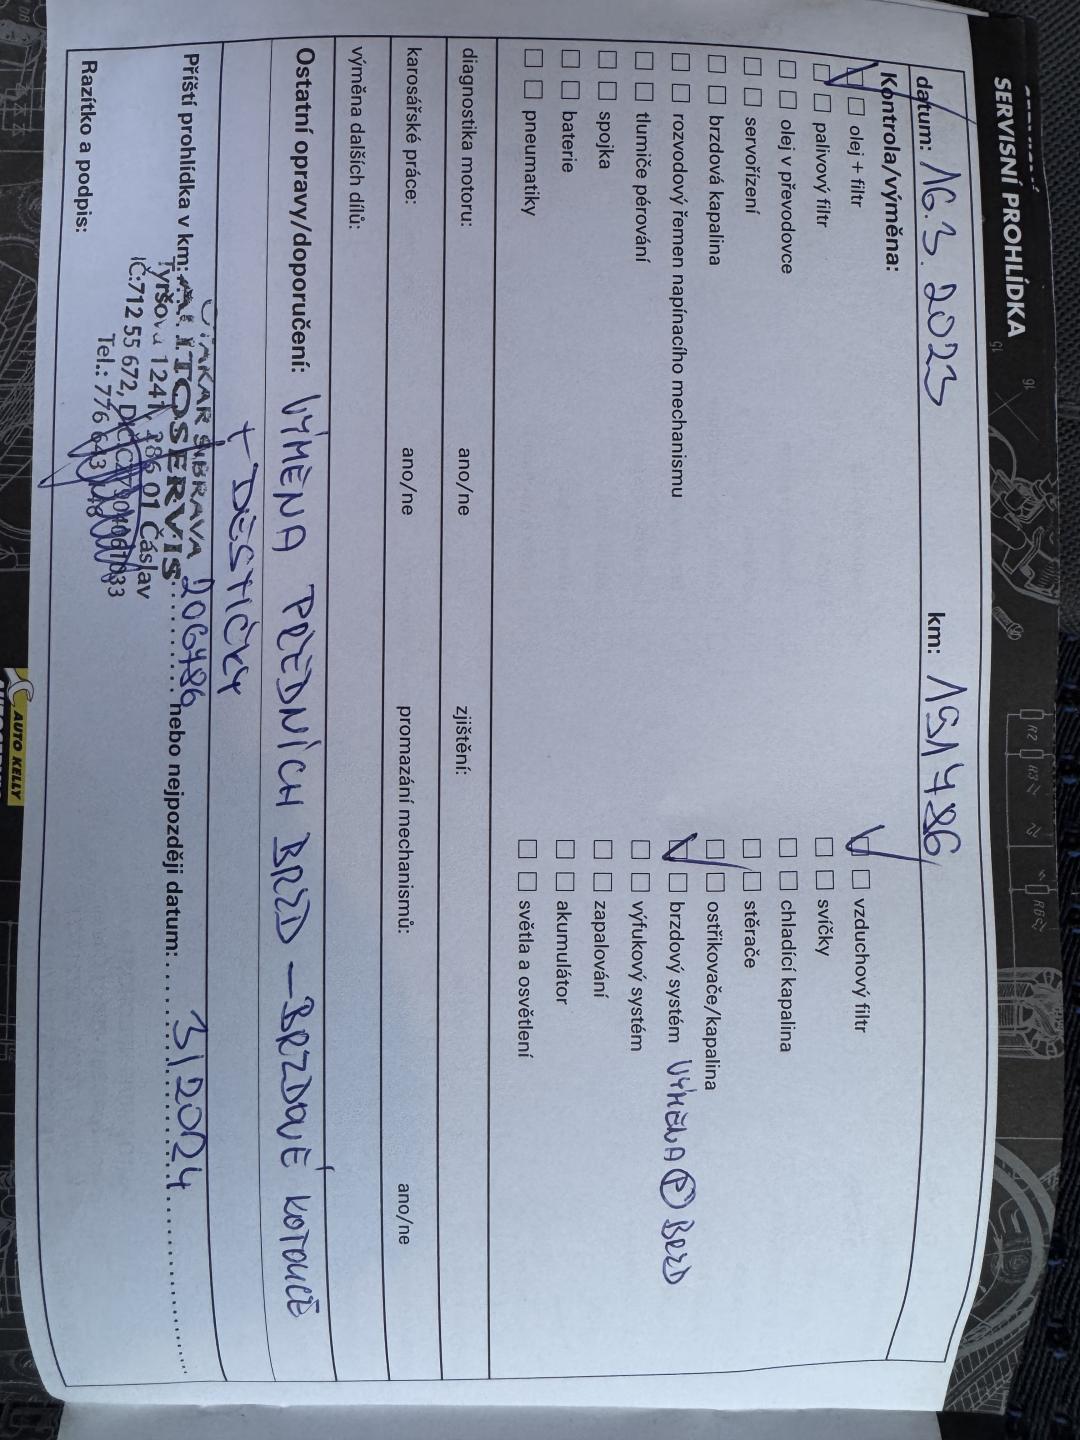 SERVISNÍ PROHLÍDKA
datum: 16.3.2023 km: 191486
Kontrola/výměna:
olej + filtr
palivový filtr
olej v převodovce
servořízení
brzdová kapalina
rozvodový řemen napínacího mechanismu
tlumiče pérování
spojka
baterie
pneumatiky
vzduchový filtr
svíčky
chladící kapalina
stěrače
ostřikovače/kapalina
brzdový systém VÝMĚNA P BRZD
výfukový systém
zapalování
akumulátor
světla a osvětlení
diagnostika motoru: ano/ne zjištění:
karosářské práce: ano/ne promazání mechanismů: ano/ne
výměna dalších dílů:
Ostatní opravy/doporučení: VÝMĚNA PŘEDNÍCH BRZD – BRZDOVÉ KOTOUČE
+ DESTIČKY
Příští prohlídka v km: 206486 nebo nejpozději datum: 3/2024
Razítko a podpis:
OTAKAR SIBRAVA
AUTOSERVIS
Tyršova 1241, 286 01 Čáslav
IČ:712 55 672,
Tel.: 776 643
AUTO KELLY